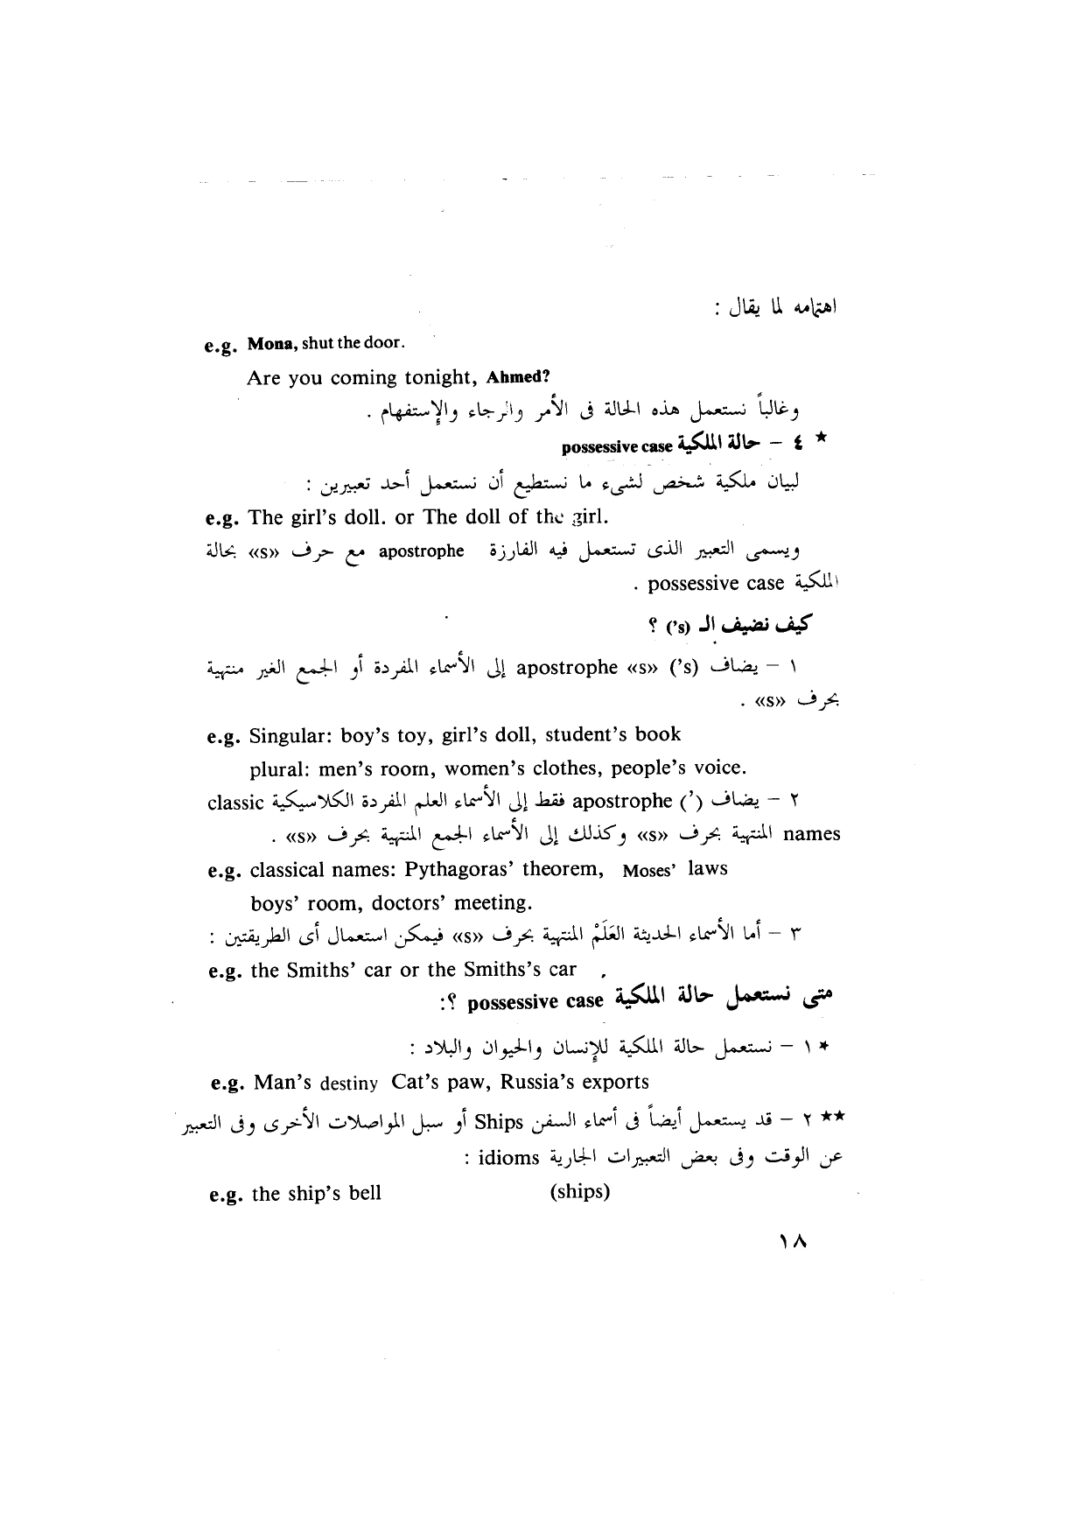 اهتمامه لما يقال :
e.g. Mona, shut the door.
Are you coming tonight, Ahmed?
وغالباً نستعمل هذه الحالة فى الأمر والرجاء والإستفهام .
★ ٤ – حالة الملكية possessive case
لبيان ملكية شخص لشىء ما نستطيع أن نستعمل أحد تعبيرين :
e.g. The girl's doll. or The doll of the girl.
ويسمى التعبير الذى تستعمل فيه الفارزة apostrophe مع حرف «s» بحالة
الملكية possessive case .
كيف نضيف الـ ('s) ؟
١ – يضاف ('s) apostrophe «s» إلى الأسماء المفردة أو الجمع الغير منتهية
بحرف «s» .
e.g. Singular: boy's toy, girl's doll, student's book
plural: men's room, women's clothes, people's voice.
٢ – يضاف (') apostrophe فقط إلى الأسماء العلم المفردة الكلاسيكية classic
names المنتهية بحرف «s» وكذلك إلى الأسماء الجمع المنتهية بحرف «s» .
e.g. classical names: Pythagoras' theorem, Moses' laws
boys' room, doctors' meeting.
٣ – أما الأسماء الحديثة العَلَمْ المنتهية بحرف «s» فيمكن استعمال أى الطريقتين :
e.g. the Smiths' car or the Smiths's car .
متى نستعمل حالة الملكية possessive case ؟:
★ ١ – نستعمل حالة الملكية للإنسان والحيوان والبلاد :
e.g. Man's destiny Cat's paw, Russia's exports
★★ ٢ – قد يستعمل أيضاً فى أسماء السفن Ships أو سبل المواصلات الأخرى وفى التعبير
عن الوقت وفى بعض التعبيرات الجارية idioms :
e.g. the ship's bell (ships)
١٨